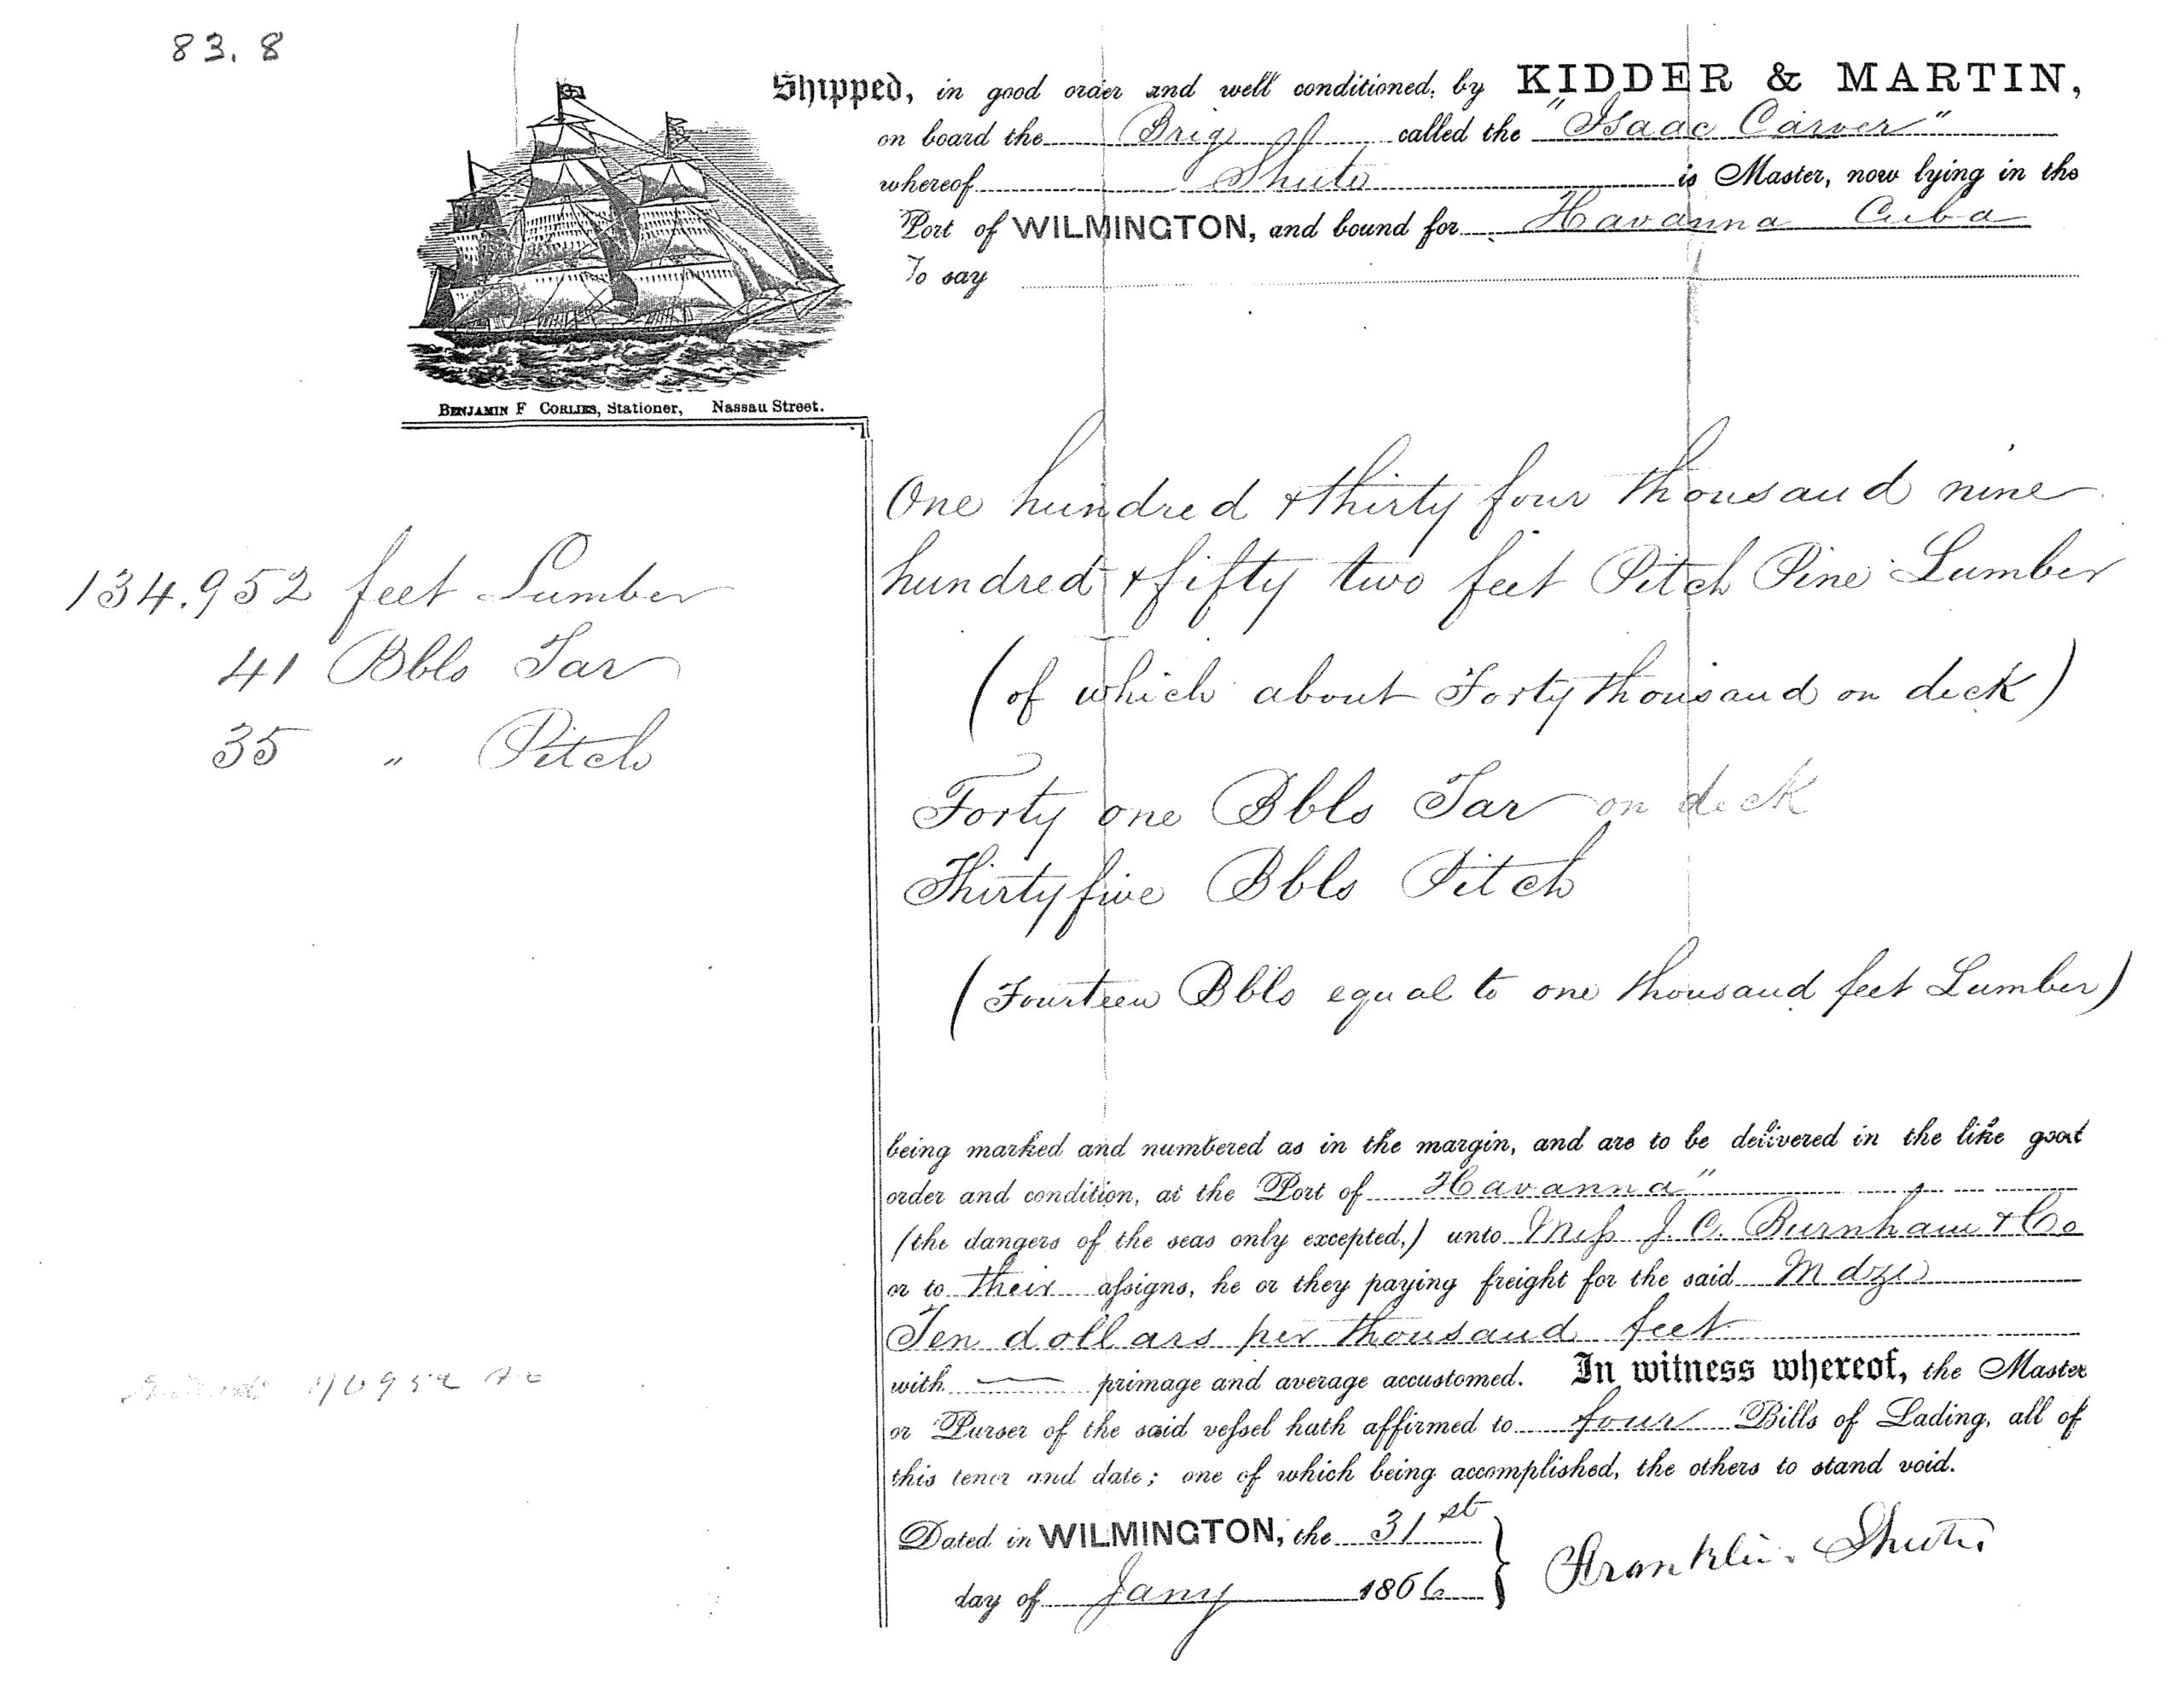 83.8
Shipped, in good order and well conditioned, by KIDDER & MARTIN,
on board the Brig called the "Isaac Carver"
whereof Shute is Master, now lying in the
Port of WILMINGTON, and bound for Havanna Cuba
To say
BENJAMIN F CORLIES, Stationer, Nassau Street.
134.952 feet Lumber
41 Bbls Tar
35 " Pitch
One hundred & thirty four thousand nine
hundred & fifty two feet Pitch Pine Lumber
(of which about Forty thousand on deck)
Forty one Bbls Tar on deck
Thirty five Bbls Pitch
(Fourteen Bbls equal to one thousand feet Lumber)
being marked and numbered as in the margin, and are to be delivered in the like good
order and condition, at the Port of Havanna"
(the dangers of the seas only excepted,) unto Mess J. C. Burnham & Co
or to their assigns, he or they paying freight for the said Mdze
Ten dollars per thousand feet
with — primage and average accustomed. In witness whereof, the Master
or Purser of the said vessel hath affirmed to four Bills of Lading, all of
this tenor and date; one of which being accomplished, the others to stand void.
Dated in WILMINGTON, the 31st
day of Jany 1866
Franklin Shute